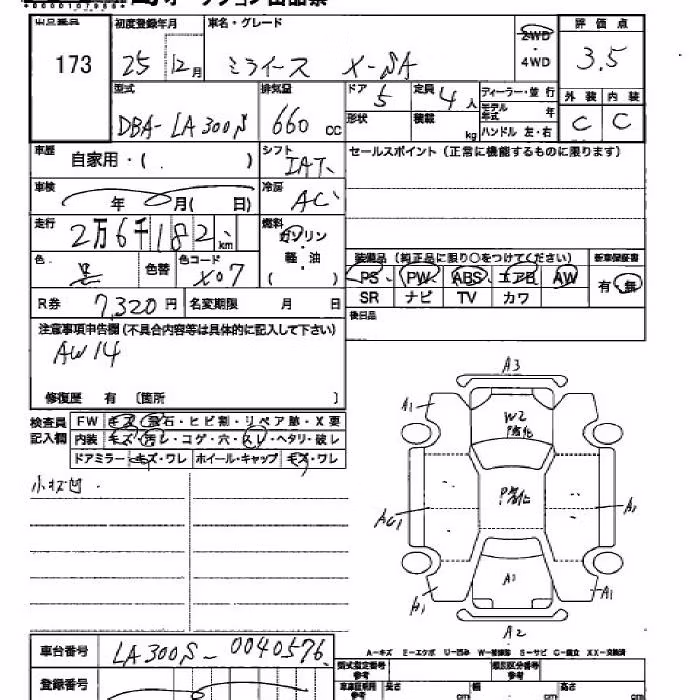 出品番号 初度登録年月 車名・グレード 2WD 評価点
173 25 12月 ミライース X-SA 4WD 3.5
型式 排気量 ドア 5 定員 4人 ディーラー・並行 外装 内装
DBA-LA300S 660 cc 形状 積載 kg モデル年式 年 C C
ハンドル 左・右
車歴 自家用・( ) シフト IAT セールスポイント(正常に機能するものに限ります)
車検 年 月( 日) 冷房 AC
走行 2万6千182km 燃料 ガソリン
軽・油
( )
装備品(純正品に限り○をつけてください) 新車保証書
色 黒 色替 色コード X07 PS PW ABS エアB AW 有・無
SR ナビ TV カワ
R券 7,320円 名変期限 月 日 後日品
注意事項申告欄(不具合内容等は具体的に記入して下さい)
AW14
修復歴 有 〔箇所 〕
検査員記入欄 FW キズ・飛石・ヒビ割・リペア跡・X要
内装 キズ・汚レ・コゲ・穴・スレ・ヘタリ・破レ
ドアミラー キズ・ワレ ホイール・キャップ キズ・ワレ
小キズ凹
A3
A1
W2
A1
A1
A1
A1
A2
車台番号 LA300S-0040576
A-キズ E-エクボ U-凹み S-サビ C-腐食 XX-交換済
登録番号
型式指定番号 類別区分番号
長さ cm 幅 cm 高さ cm